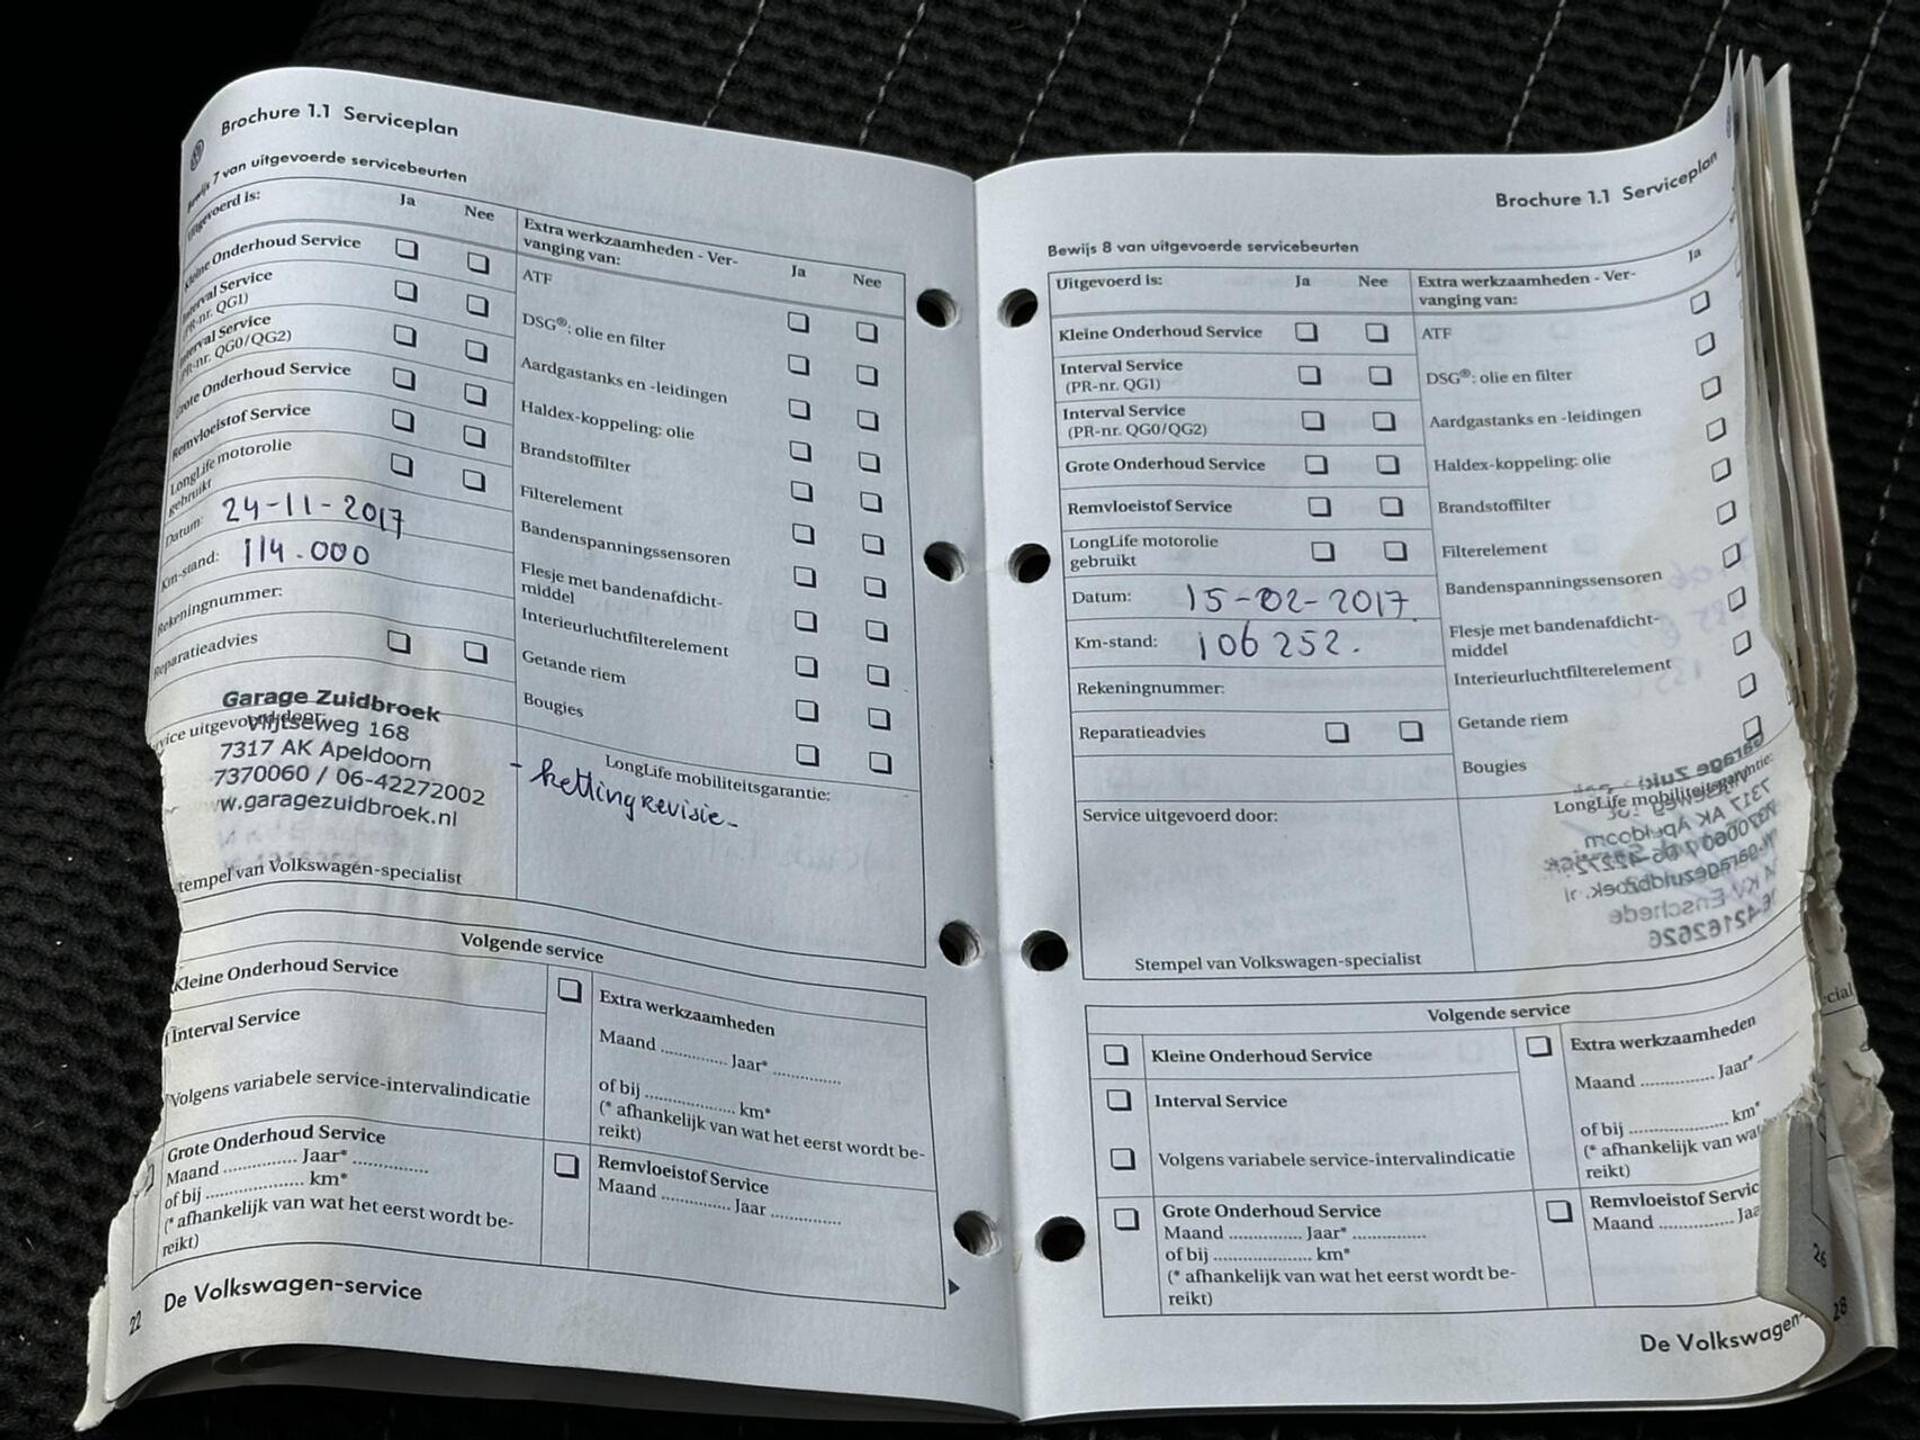 Brochure 1.1 Serviceplan
Bewijs 7 van uitgevoerde servicebeurten
Uitgevoerd is:
Ja
Nee
Kleine Onderhoud Service
Interval Service
(PR-nr. QG1)
Interval Service
(PR-nr. QG0/QG2)
Grote Onderhoud Service
Remvloeistof Service
LongLife motorolie
gebruikt
Datum: 24-11-2017
Km-stand: 114.000
Rekeningnummer:
Reparatieadvies
Garage Zuidbroek
Vlijtseweg 168
7317 AK Apeldoorn
7370060 / 06-42272002
w.garagezuidbroek.nl
vice uitgevoerd door:
tempel van Volkswagen-specialist
Extra werkzaamheden - Ver-
vanging van:
Ja
Nee
ATF
DSG®: olie en filter
Aardgastanks en -leidingen
Haldex-koppeling: olie
Brandstoffilter
Filterelement
Bandenspanningssensoren
Flesje met bandenafdicht-
middel
Interieurluchtfilterelement
Getande riem
Bougies
LongLife mobiliteitsgarantie:
- kettingrevisie -
Volgende service
Kleine Onderhoud Service
Interval Service
Volgens variabele service-intervalindicatie
Grote Onderhoud Service
Maand ............... Jaar* ...............
of bij .................... km*
(* afhankelijk van wat het eerst wordt be-
reikt)
Extra werkzaamheden
Maand .............. Jaar* ..............
of bij ................... km*
(* afhankelijk van wat het eerst wordt be-
reikt)
Remvloeistof Service
Maand .............. Jaar ..............
22 De Volkswagen-service
Brochure 1.1 Serviceplan
Bewijs 8 van uitgevoerde servicebeurten
Uitgevoerd is:
Ja
Nee
Kleine Onderhoud Service
Interval Service
(PR-nr. QG1)
Interval Service
(PR-nr. QG0/QG2)
Grote Onderhoud Service
Remvloeistof Service
LongLife motorolie
gebruikt
Datum: 15-02-2017
Km-stand: 106 252.
Rekeningnummer:
Reparatieadvies
Service uitgevoerd door:
Stempel van Volkswagen-specialist
Extra werkzaamheden - Ver-
vanging van:
Ja
ATF
DSG®: olie en filter
Aardgastanks en -leidingen
Haldex-koppeling: olie
Brandstoffilter
Filterelement
Bandenspanningssensoren
Flesje met bandenafdicht-
middel
Interieurluchtfilterelement
Getande riem
Bougies
LongLife mobiliteitsgarantie:
Volgende service
Kleine Onderhoud Service
Interval Service
Volgens variabele service-intervalindicatie
Grote Onderhoud Service
Maand ............... Jaar* ...............
of bij .................... km*
(* afhankelijk van wat het eerst wordt be-
reikt)
Extra werkzaamheden
Maand ............... Jaar* ........
of bij ................... km*
(* afhankelijk van wat
reikt)
Remvloeistof Servic
Maand ............... Jaa
De Volkswagen-
26
28